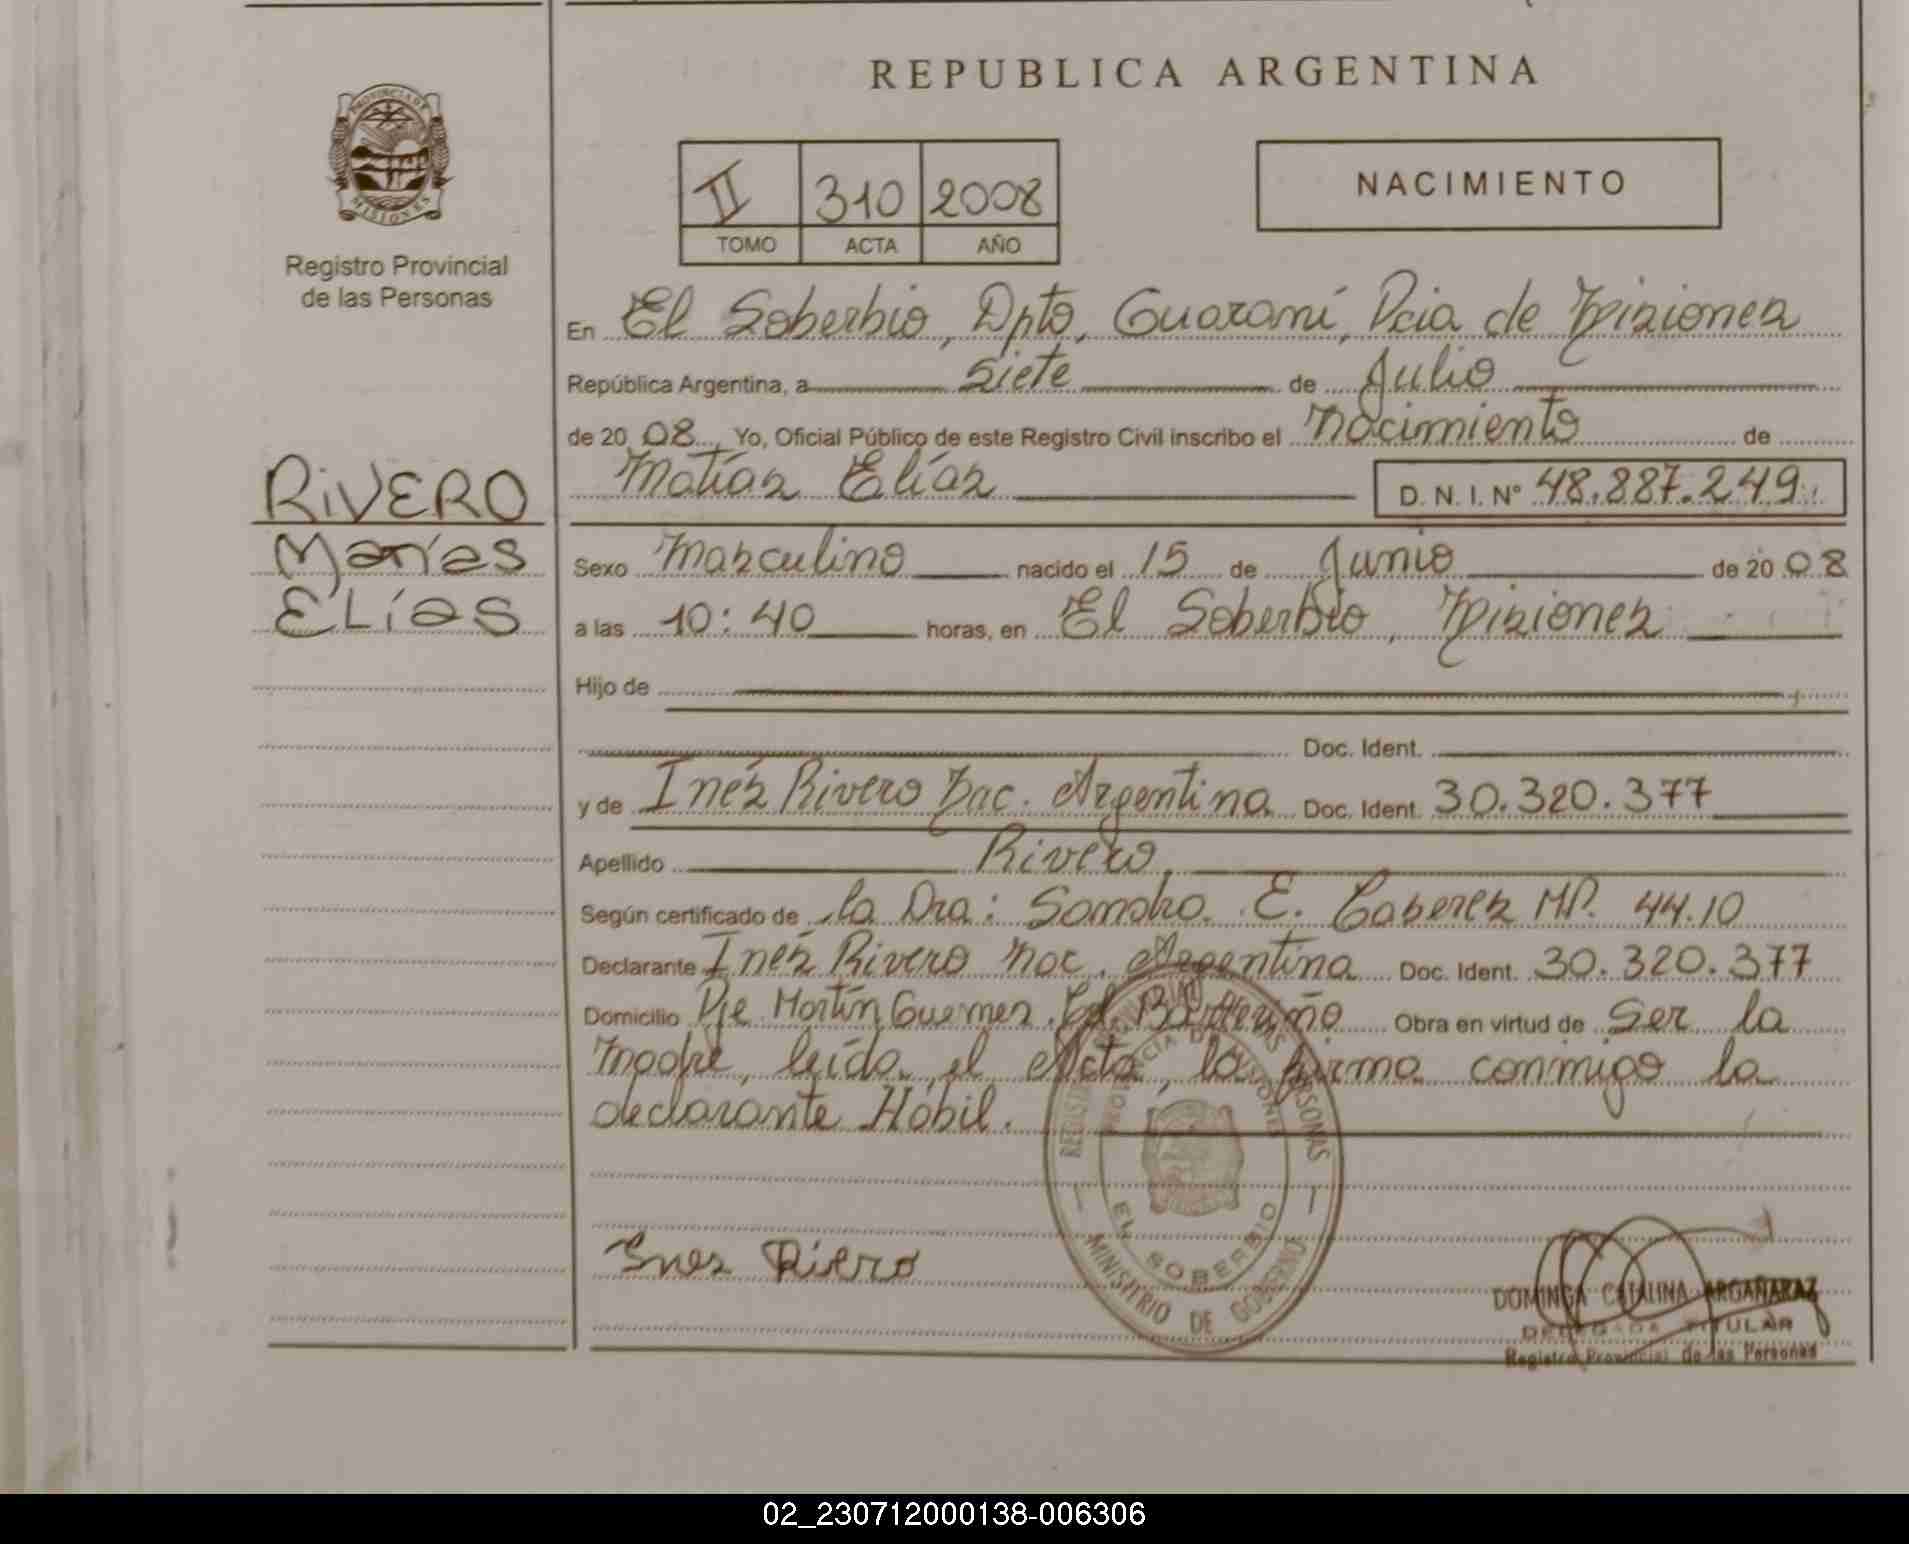 REPUBLICA ARGENTINA
PROVINCIA DE
MISIONES
Registro Provincial
de las Personas
II 310 2008
TOMO ACTA AÑO
NACIMIENTO
En El Soberbio, Dpto, Guaraní, Pcia de Misiones
República Argentina, a siete de Julio
de 20 08, Yo, Oficial Público de este Registro Civil inscribo el nacimiento de
Matías Elías D. N. I. Nº 48.887.249
RIVERO
Matías
ELías
Sexo Masculino nacido el 15 de Junio de 20 08
a las 10:40 horas, en El Soberbio, Misiones
Hijo de
Doc. Ident.
y de Inés Rivero Nac. Argentina Doc. Ident. 30.320.377
Apellido Rivero
Según certificado de la Dra: Sandra E. MP. 44.10
Declarante Inés Rivero nac. Argentina Doc. Ident. 30.320.377
Domicilio Pje Martín Guemes. Obra en virtud de Ser la
madre, leída el Acta, la firma conmigo la
declarante Hábil.
Ines Rivero
PROVINCIA DE MISIONES
EL SOBERBIO
MINISTERIO DE GOBIERNO
DOMINGA CATALINA ARGAÑARAZ
DELEGADA TITULAR
Registro Provincial de las Personas
02_230712000138-006306